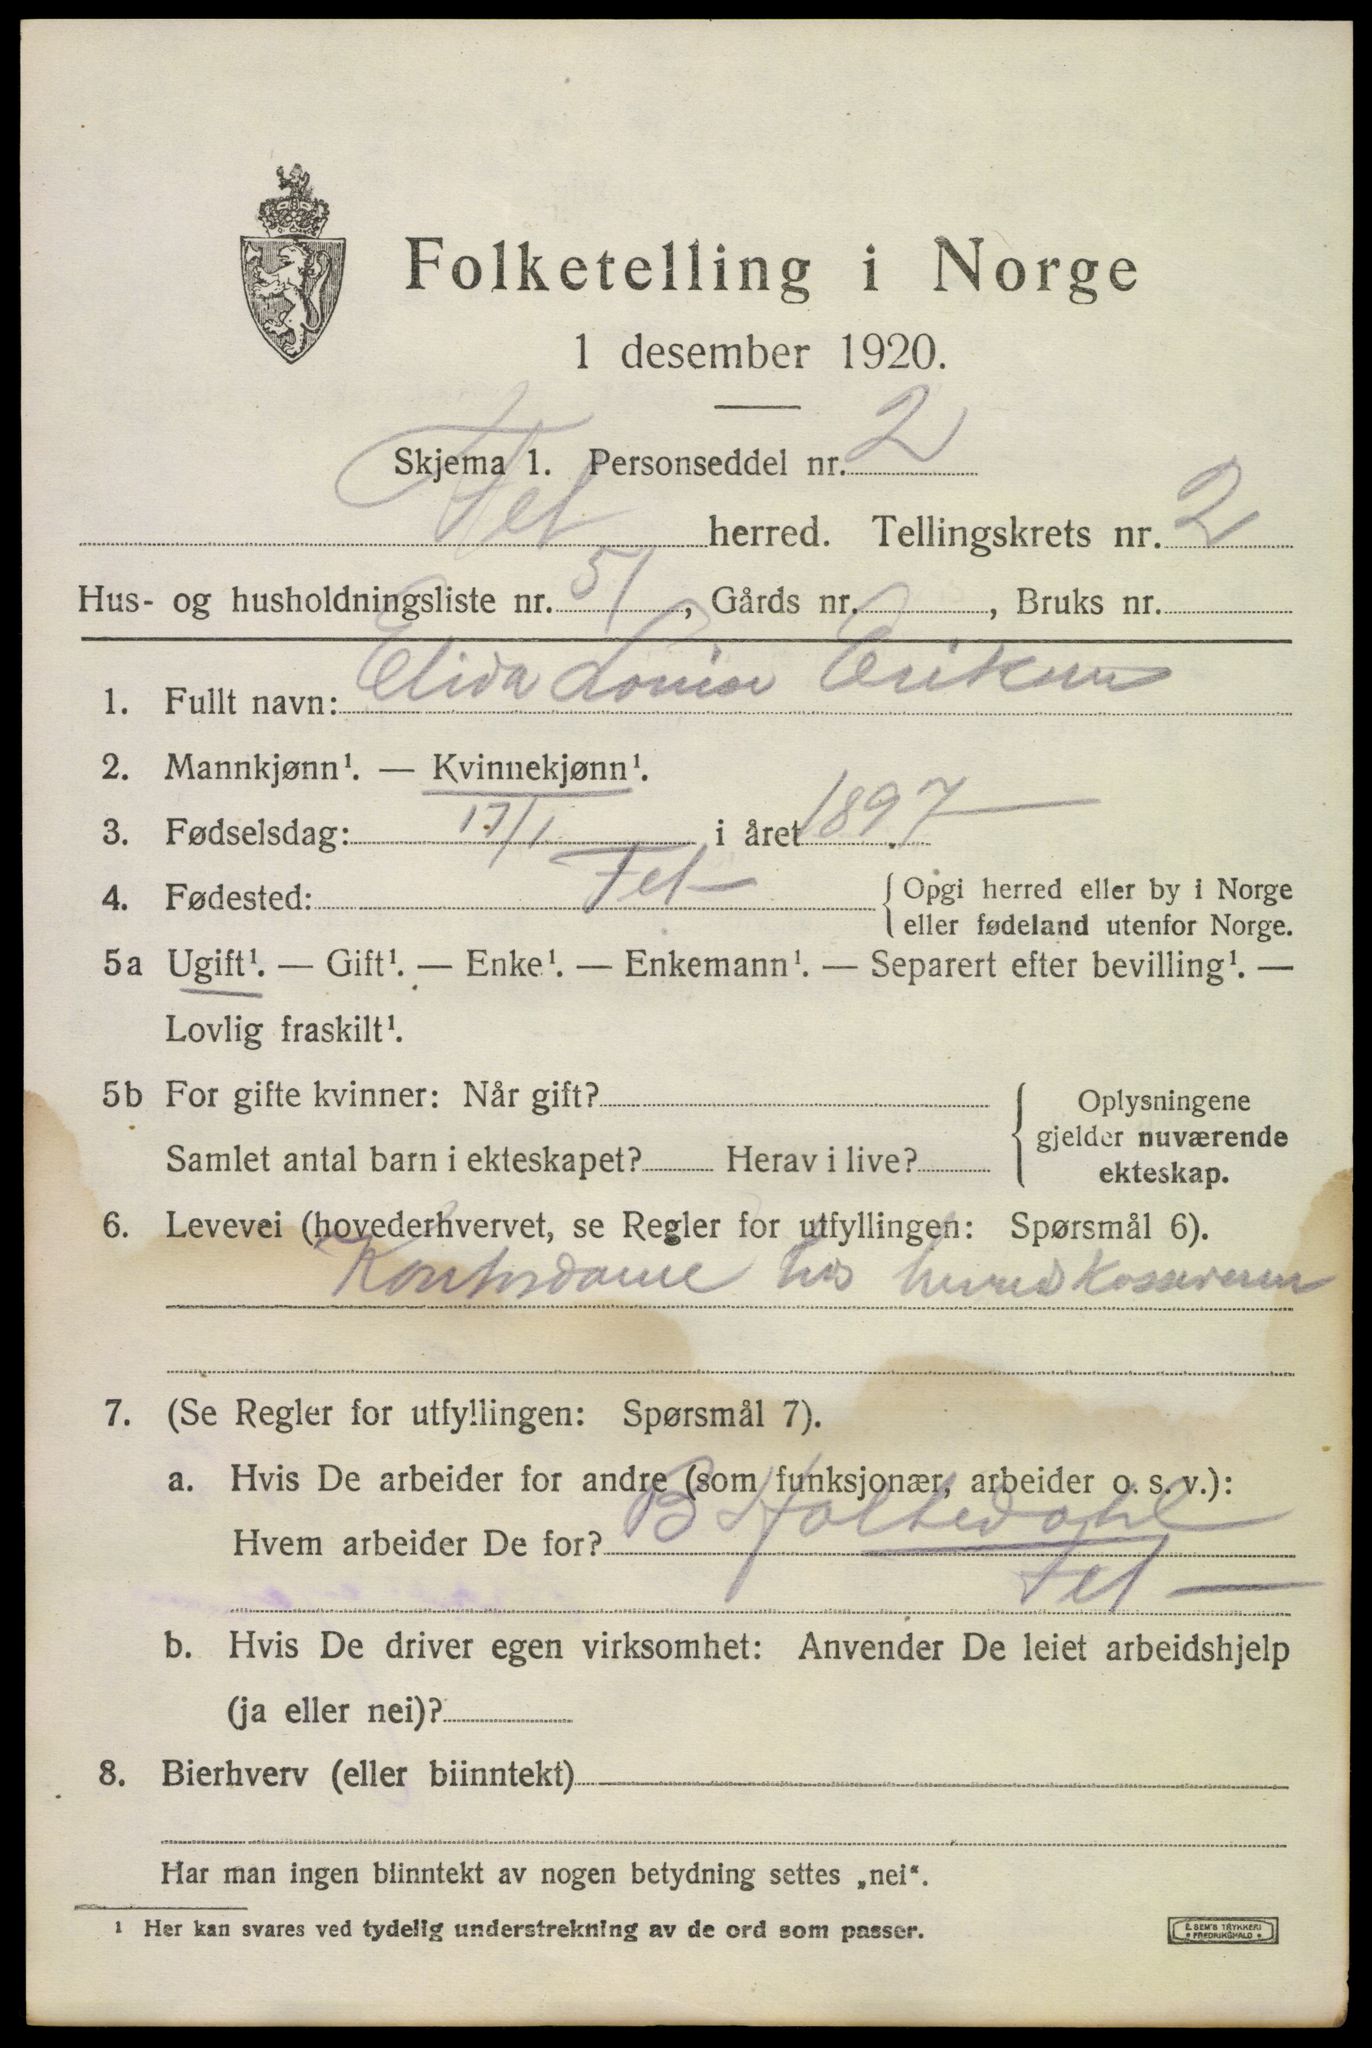 Folketelling i Norge
1 desember 1920.
Skjema 1. Personseddel nr. 2
Fet herred. Tellingskrets nr. 2
Hus- og husholdningsliste nr. 51, Gårds nr. , Bruks nr.
1. Fullt navn: Elida Louise Eriksen
2. Mannkjønn¹. — Kvinnekjønn¹.
3. Fødselsdag: 17/1 i året 1897
4. Fødested: Fet { Opgi herred eller by i Norge
eller fødeland utenfor Norge.
5a Ugift¹. — Gift¹. — Enke¹. — Enkemann¹. — Separert efter bevilling¹. —
Lovlig fraskilt¹.
5b For gifte kvinner: Når gift? { Oplysningene
gjelder nuværende
Samlet antal barn i ekteskapet? Herav i live?
ekteskap.
6. Levevei (hovederhvervet, se Regler for utfyllingen: Spørsmål 6).
Kontordame hos herredskassereren
7. (Se Regler for utfyllingen: Spørsmål 7).
a. Hvis De arbeider for andre (som funksjonær, arbeider o. s. v.):
Hvem arbeider De for? B Holtedahl
Fet —
b. Hvis De driver egen virksomhet: Anvender De leiet arbeidshjelp
(ja eller nei)?
8. Bierhverv (eller biinntekt)
Har man ingen biinntekt av nogen betydning settes „nei“.
¹ Her kan svares ved tydelig understrekning av de ord som passer.
E. SEM'S TRYKKERI
• FREDRIKSHALD •